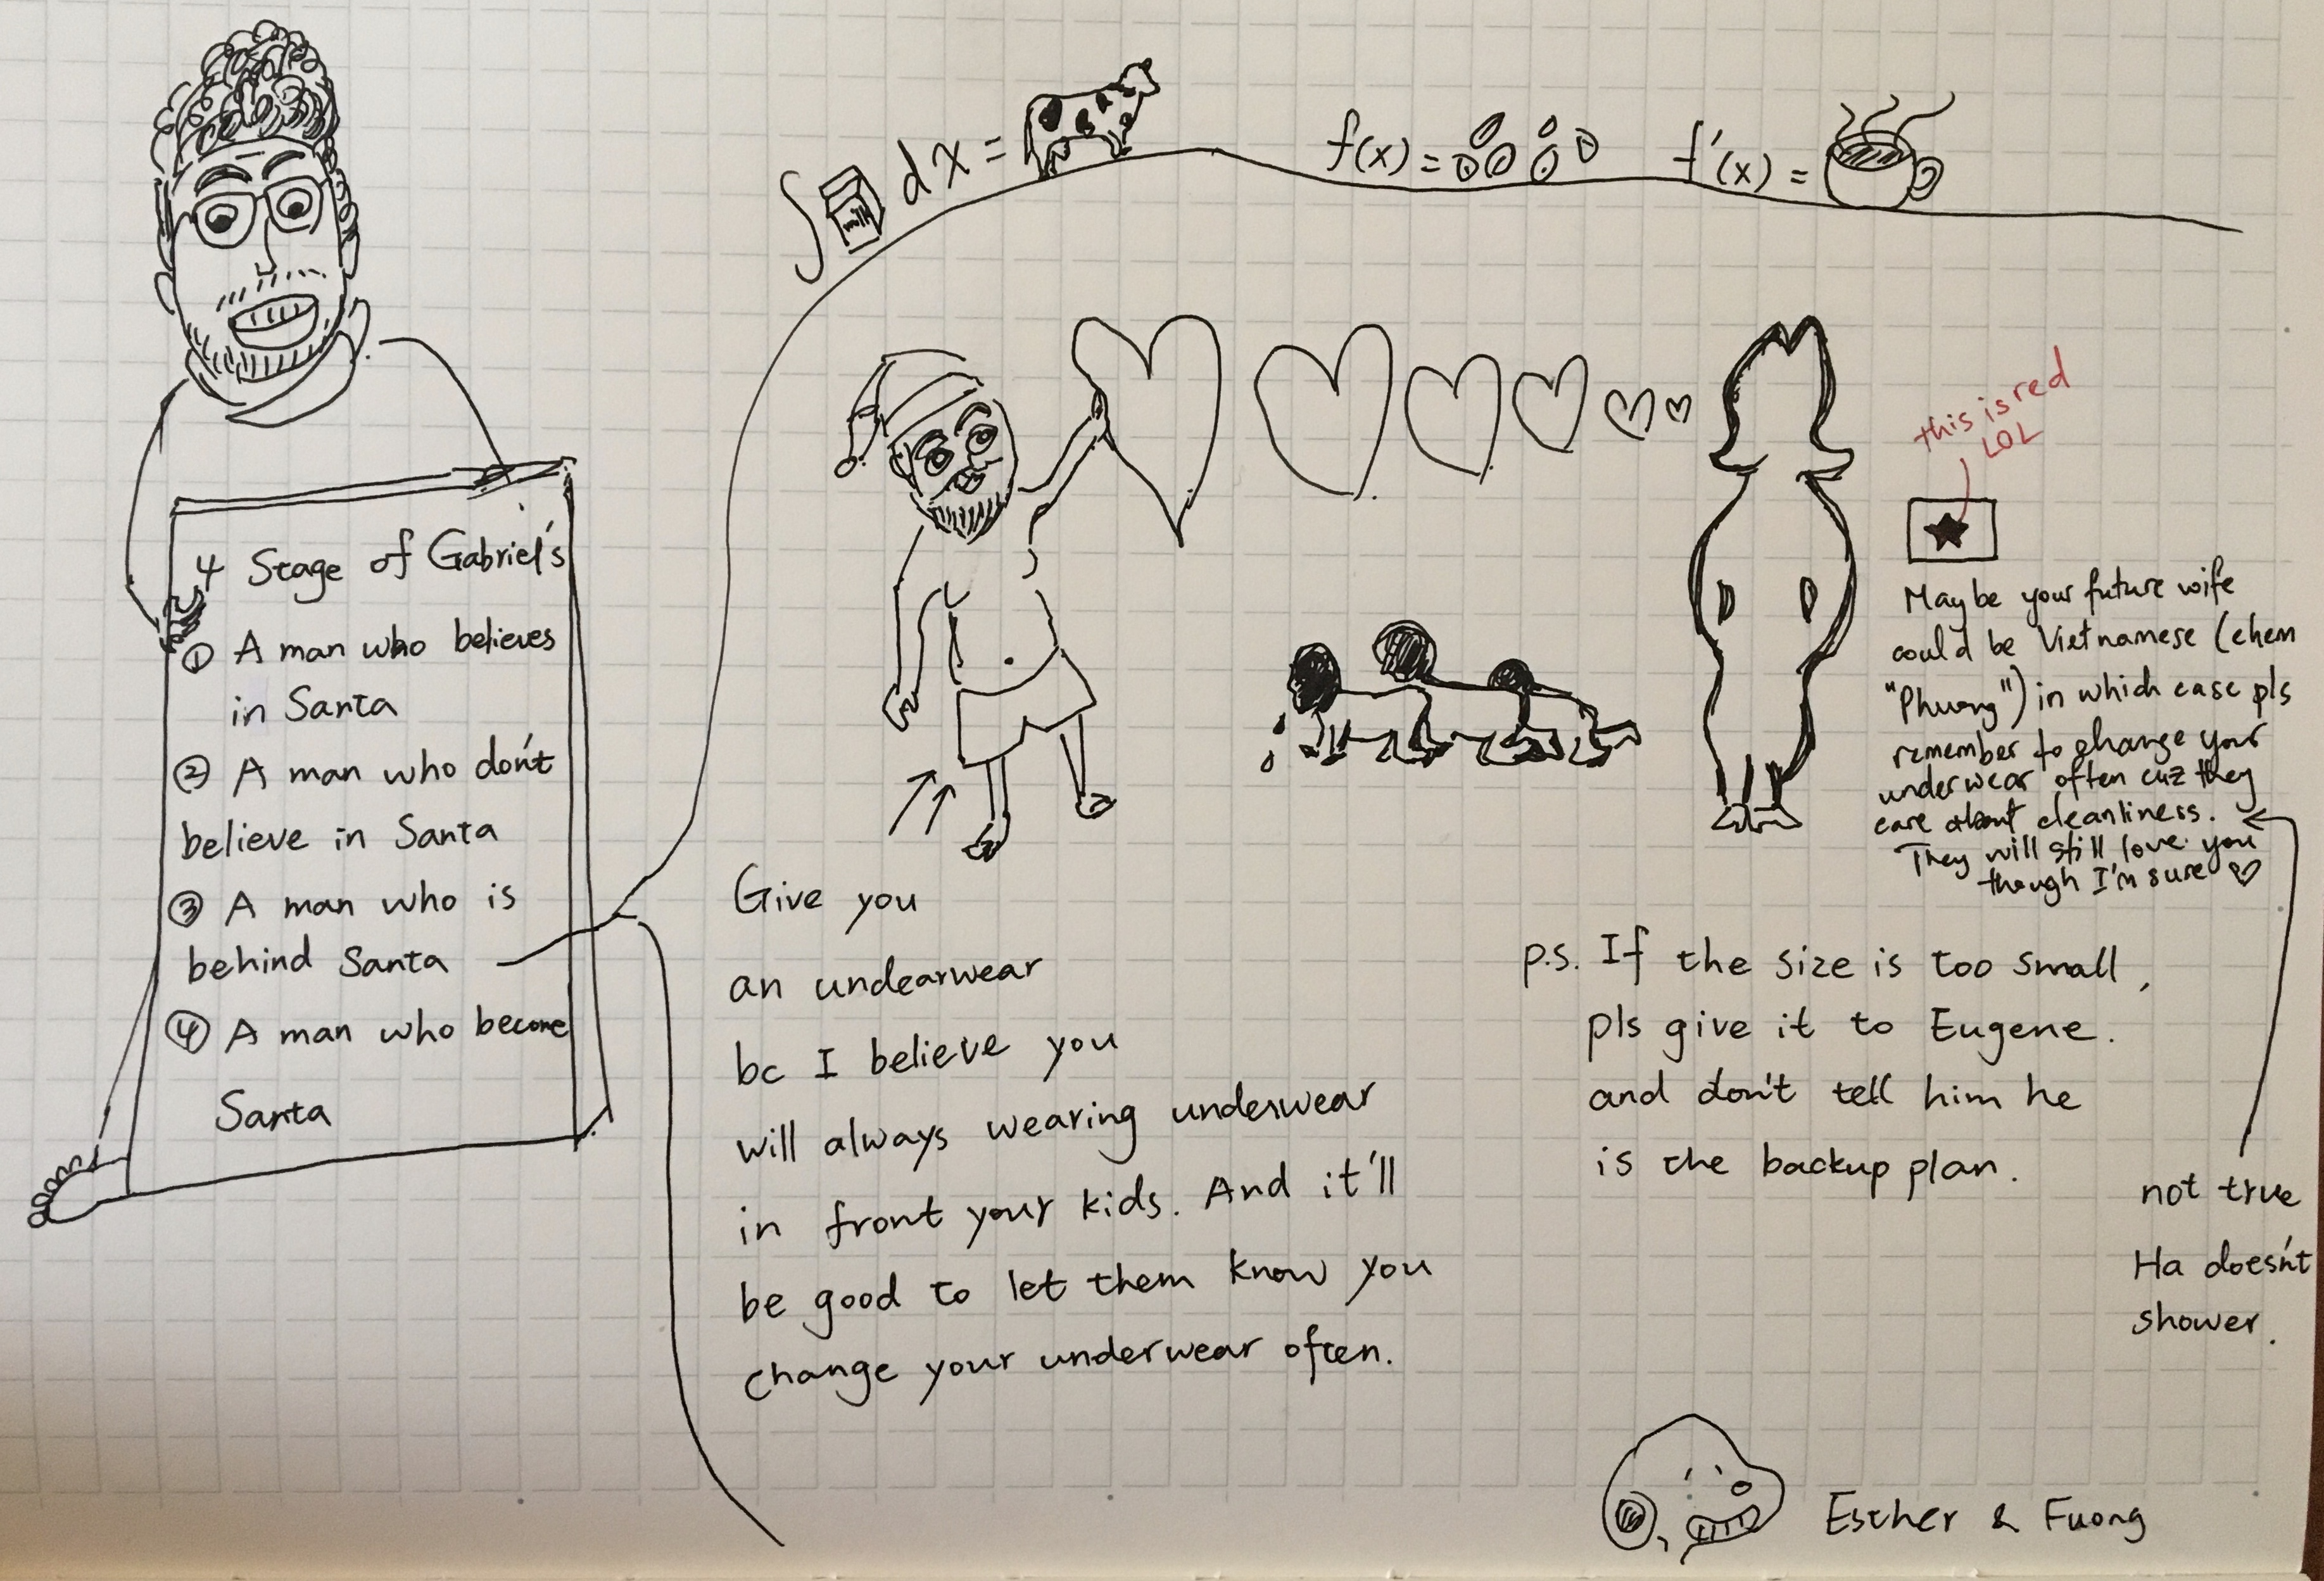 ∫ dx =
f(x) =
f'(x) =
4 Stage of Gabriel's
① A man who believes
in Santa
② A man who don't
believe in Santa
③ A man who is
behind Santa
④ A man who become
Santa
this is red
LOL
Maybe your future wife
could be Vietnamese (ehem
"Phuong") in which case pls
remember to change your
underwear often cuz they
care about cleanliness.
They will still love you
though I'm sure ♡
Give you
an undearwear
bc I believe you
will always wearing underwear
in front your kids. And it'll
be good to let them know you
change your underwear often.
p.s. If the size is too small,
pls give it to Eugene.
and don't tell him he
is the backup plan.
not true
Ha doesn't
shower.
Esther & Fuong